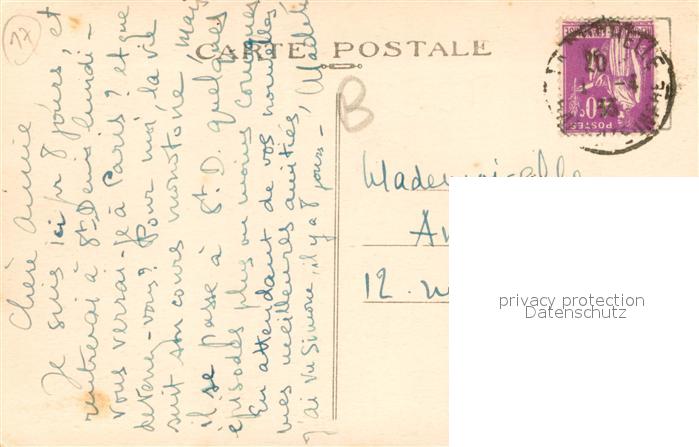 17
CARTE POSTALE
B
Chère amie
Je suis ici pr 8 jours, et
rentrerai à St. Denis lundi-
vous verrai-je à Paris ? et que
devenez-vous? Pour moi, la vie
suit son cours monotone, mais
il se passe à St. D. quelques
épisodes plus ou moins comiques
En attendant de vos nouvelles
mes meilleures amitiés,
j'ai vu Simone, il y a 8 jours -
Mademoiselle
12.
20
POSTES
privacy protection
Datenschutz